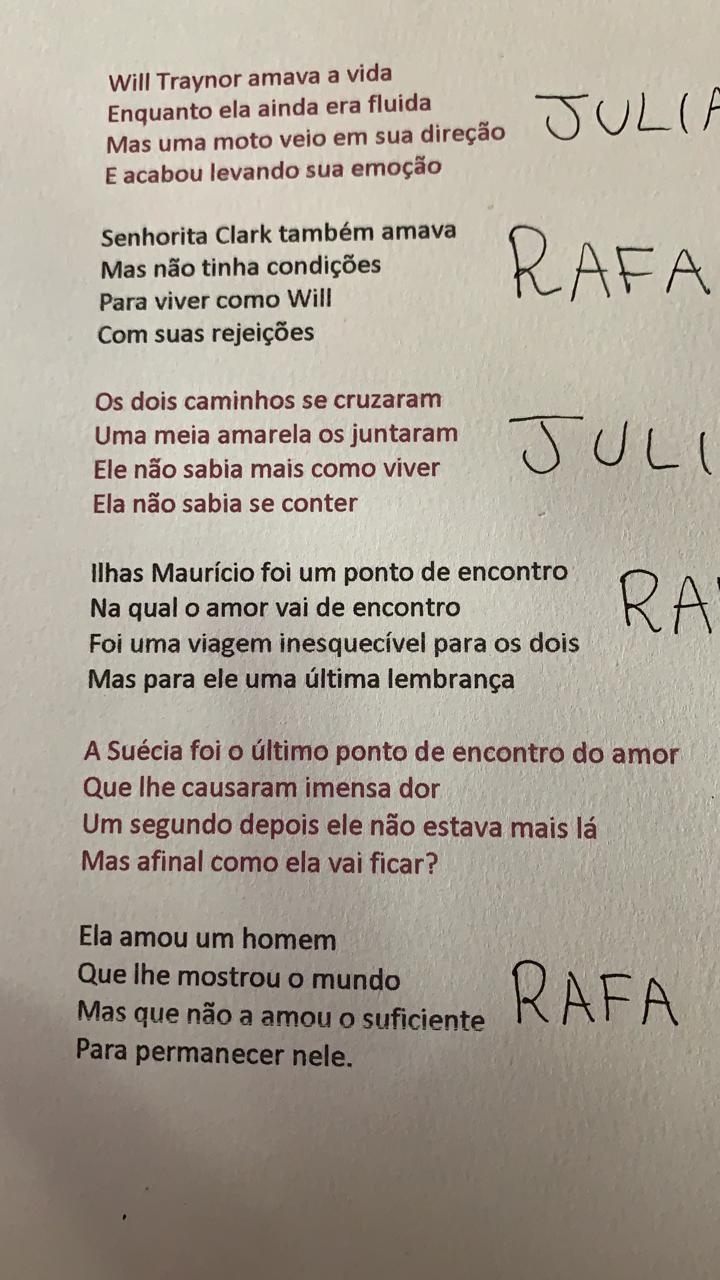 Will Traynor amava a vida
Enquanto ela ainda era fluida
Mas uma moto veio em sua direção
E acabou levando sua emoção
JULIA
Senhorita Clark também amava
Mas não tinha condições
Para viver como Will
Com suas rejeições
RAFA
Os dois caminhos se cruzaram
Uma meia amarela os juntaram
Ele não sabia mais como viver
Ela não sabia se conter
JULI
Ilhas Maurício foi um ponto de encontro
Na qual o amor vai de encontro
Foi uma viagem inesquecível para os dois
Mas para ele uma última lembrança
RA
A Suécia foi o último ponto de encontro do amor
Que lhe causaram imensa dor
Um segundo depois ele não estava mais lá
Mas afinal como ela vai ficar?
Ela amou um homem
Que lhe mostrou o mundo
Mas que não a amou o suficiente
Para permanecer nele.
RAFA